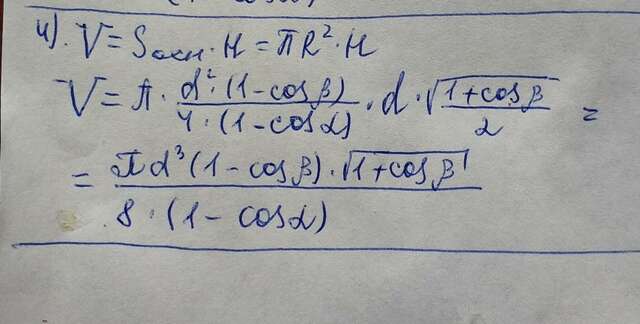 4). V = Sосн. · H = πR² · H
V = π · d² · (1 - cos β) / 4 · (1 - cos α) · d · √(1 + cos β) / 2 =
= πd³ (1 - cos β) · √(1 + cos β) / 8 · (1 - cos α)